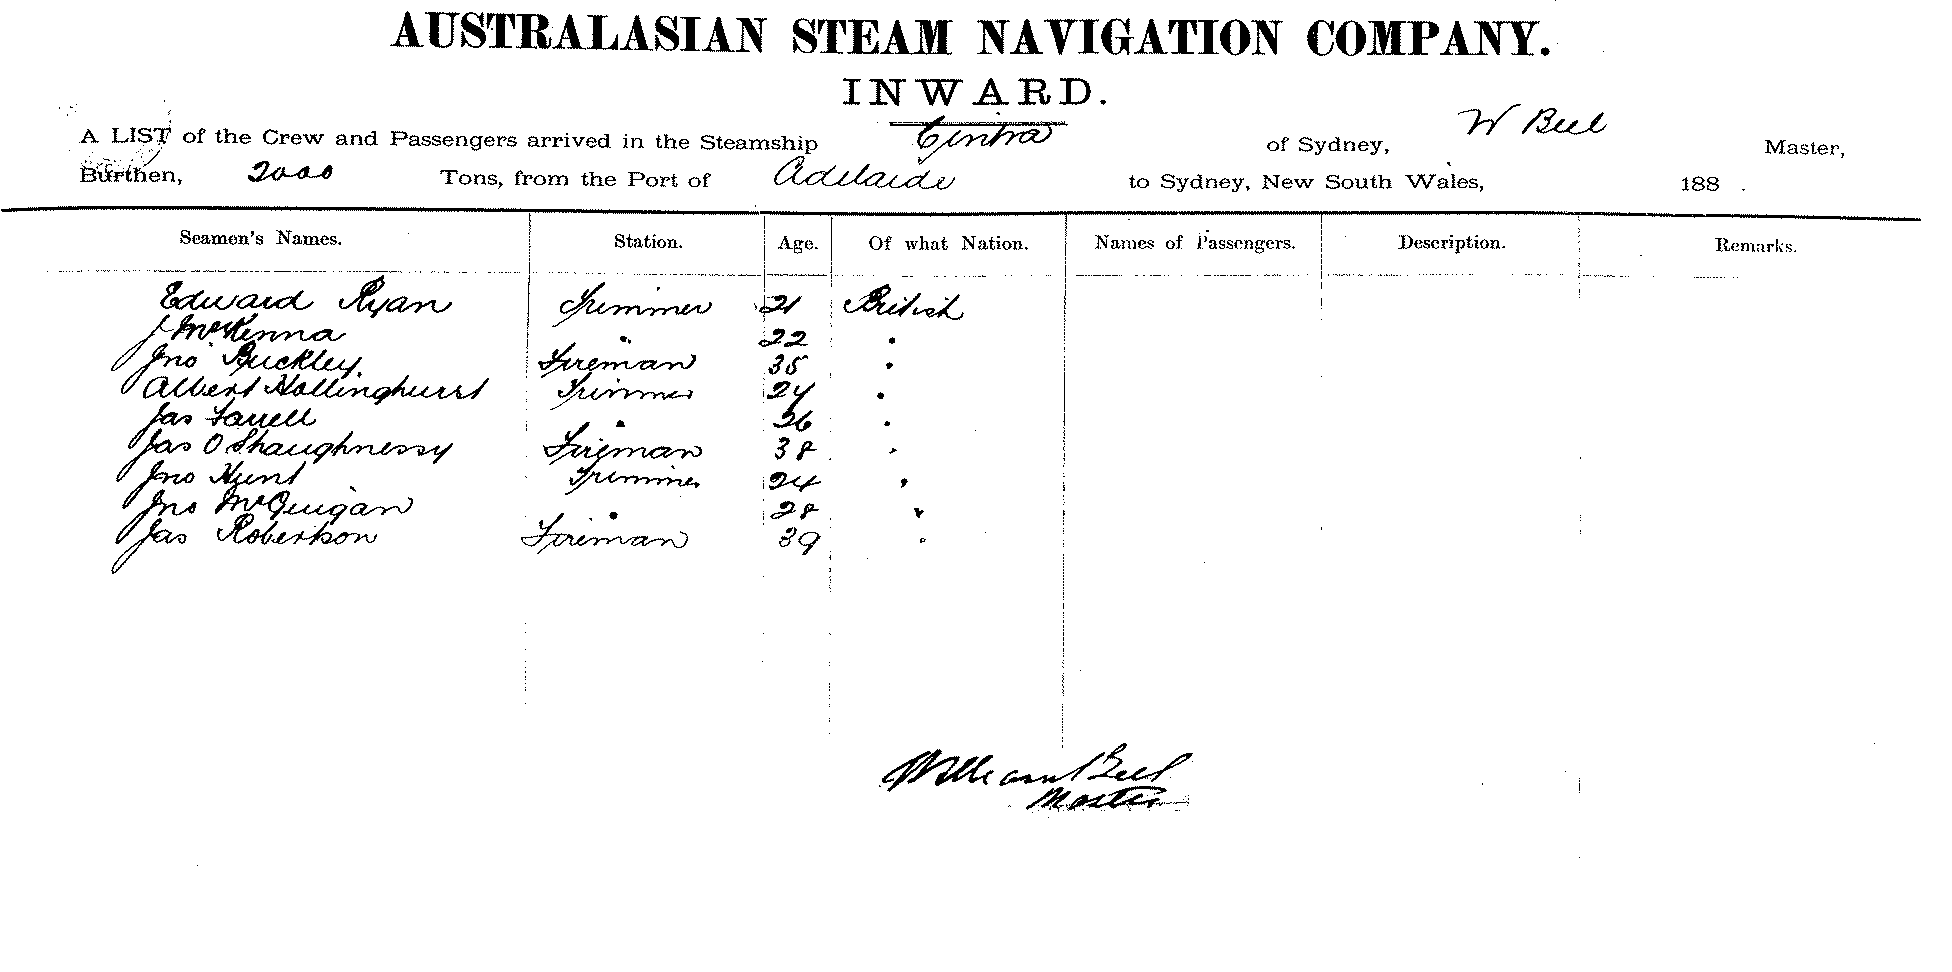 AUSTRALASIAN STEAM NAVIGATION COMPANY.
INWARD.
A LIST of the Crew and Passengers arrived in the Steamship Cintra of Sydney, W Beel Master,
Burthen, 2000 Tons, from the Port of Adelaide to Sydney, New South Wales, 188 .
Seamen's Names. Station. Age. Of what Nation. Names of Passengers. Description. Remarks.
Edward Ryan Trimmer 21 British
J McKenna " 22 "
Jno Buckley Fireman 35 "
Albert Hollinghurst Trimmer 24 "
Jas Farrell " 26 "
Jas O'Shaughnessy Fireman 38 "
Jno Hunt Trimmer 24 "
Jno McGuigan " 28 "
Jas Robertson Fireman 39 "
William Beel
Master